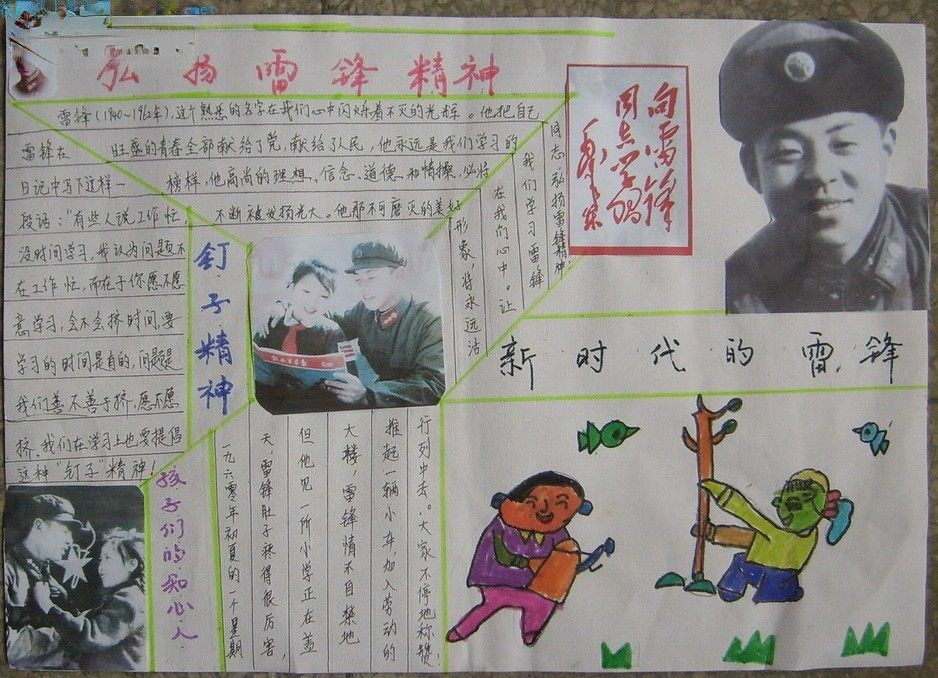 弘扬雷锋精神
雷锋(1940~1962年),这个熟悉的名字在我们心中闪烁着不灭的光辉。他把自己
旺盛的青春全部献给了党,献给了人民,他永远是我们学习的
榜样,他高尚的理想、信念、道德和情操,必将
不断被发扬光大。他那不可磨灭的美好
形象将永远活
在我们心中。让
我们学习雷锋
同志弘扬雷锋精神!
向雷锋
同志学习
毛泽东
雷锋在
日记中写下这样一
段话:“有些人说工作忙
没时间学习,我认为问题不
在工作忙,而在于你愿不愿
意学习,会不会挤时间,要
学习的时间是有的,问题是
我们善不善于挤,愿不愿
挤。我们在学习上也要提倡
这种“钉子”精神!
钉子精神
孩子们的知心人
一九六零年初夏的一个星期
天,雷锋肚子疼得很厉害,
但他见一所小学正在盖
大楼,雪锋情不自禁地
推起一辆小车,加入劳动的
行列中去。大家不停地称赞,
新时代的雷锋